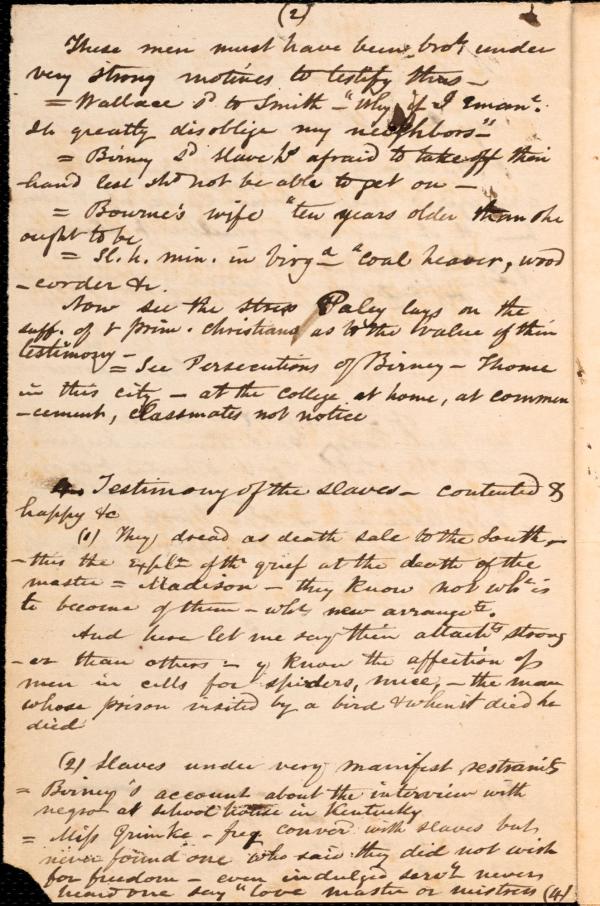 (2)
These men must have been brot under
very strong motives to testify thus —
= Wallace sd to Smith — "Why if I emanc.
Ish greatly disoblige my neighbors"
= Birney sd slavehs afraid to take off their
hand lest shd not be able to get on —
= Bourne's wife "ten years older than she
ought to be
= Sl. h. min. in Virga — "coal heaver, wood
-corder &c.
Now see the stress Paley lays on the
suff. of prim. christians as to the value of their
testimony —
= See Persecutions of Birney — Thome
in this city — at the college at home, at commen
-cement, classmates not notice
Testimony of the slaves — contented &
happy &c
(1) They dread as death sale to the South —
- this the expln of the grief at the death of the
master = Madison — they know not wht is
to become of them — wht new arrangts.
And here let me say their attachts strong
-er than others — y know the affection of
men in cells for spiders, mice, — the man
whose prison visited by a bird & when it died he
died
(2) Slaves under very manifest restraints
= Birney's account about the interview with
negro at school house in Kentucky
= Miss Grimke — freq convers with slaves but
never found one who said they did not wish
for freedom — even indulged servts never
heard one say "love master or mistress (4)